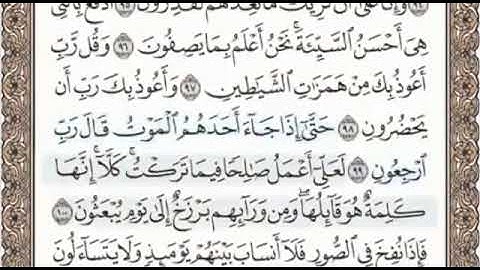 وَإِنَّا عَلَىٰٓ أَن نُّرِيَكَ مَا نَعِدُهُمْ لَقَٰدِرُونَ ٩٥ ٱدْفَعْ بِٱلَّتِى
هِىَ أَحْسَنُ ٱلسَّيِّئَةَ ۚ نَحْنُ أَعْلَمُ بِمَا يَصِفُونَ ٩٦ وَقُل رَّبِّ
أَعُوذُ بِكَ مِنْ هَمَزَٰتِ ٱلشَّيَٰطِينِ ٩٧ وَأَعُوذُ بِكَ رَبِّ أَن
يَحْضُرُونِ ٩٨ حَتَّىٰٓ إِذَا جَآءَ أَحَدَهُمُ ٱلْمَوْتُ قَالَ رَبِّ
ٱرْجِعُونِ ٩٩ لَعَلِّىٓ أَعْمَلُ صَٰلِحًا فِيمَا تَرَكْتُ ۚ كَلَّآ ۚ إِنَّهَا
كَلِمَةٌ هُوَ قَآئِلُهَا ۖ وَمِن وَرَآئِهِم بَرْزَخٌ إِلَىٰ يَوْمِ يُبْعَثُونَ ١٠٠
فَإِذَا نُفِخَ فِى ٱلصُّورِ فَلَآ أَنسَابَ بَيْنَهُمْ يَوْمَئِذٍ وَلَا يَتَسَآءَلُونَ